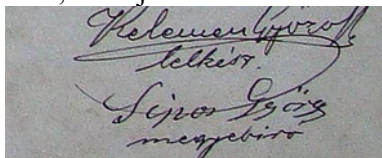 Kelemen György
lelkész.
Sipos György
megyebiró